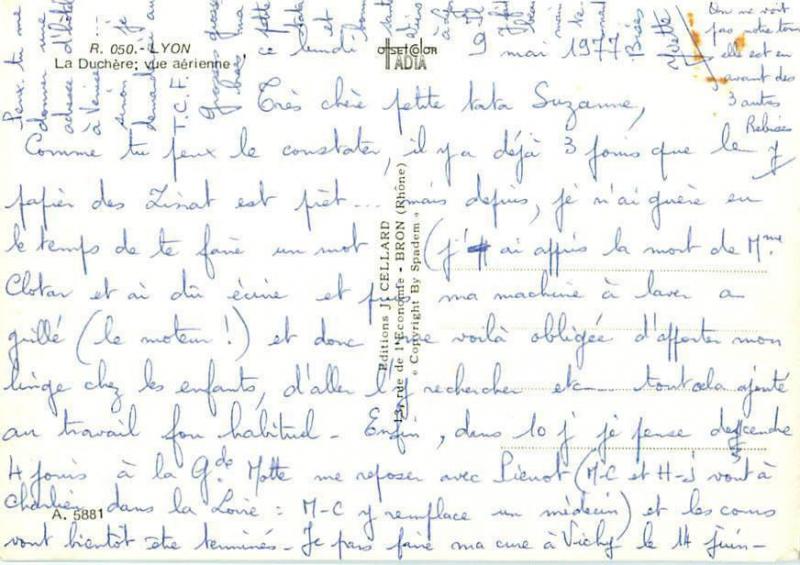 R. 050. - LYON
La Duchère; vue aérienne
OFFSET COLOR
IADTA
ce lundi 9 mai 1977
On ne voit
pas notre tour
elle est en
avant des
3 autres
Bises
Yvette
Peux-tu me
donner une
adresse
à Venise
sinon je
T.C.F.
grosses
Très chère petite tata Suzanne,
Comme tu peux le constater, il y a déjà 3 jours que le
papier des est prêt... mais depuis, je n'ai guère eu
le temps de te faire un mot (j'ai appris la mort de Mme
Clotar et ai dû écrire et puis ma machine à laver a
grillé (le moteur!) et donc me voilà obligée d'apporter mon
linge chez les enfants, d'aller l'y rechercher etc tout cela ajouté
au travail fou habituel - Enfin, dans 10 j je pense descendre
4 jours à la Gde Motte me reposer avec Pierrot (M-C et H-J vont à
Charlieu dans la Loire : M-C y remplace un médecin) et les cours
vont bientôt être terminés - Je pars faire ma cure à Vichy le 14 juin -
Editions J. CELLARD
13, rue de l'Economie - BRON (Rhône)
« Copyright By Spadem »
A. 5881